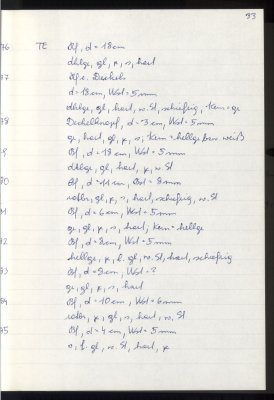 93
76 TE Bf, d = 18cm
dhlge, gl, k, s, hart
77 Bf. e. Deckels
d = 18cm, Wst = 5mm
dhlge, gl, hart, w. St, schiefrig, Kern = ge
78 Deckelknopf, d = 3cm, Wst = 5mm
ge, hart, gl, k, s, Kern = hellge bzw weiß
79 Bf, d = 18cm, Wst = 5mm
dklge, gl, hart, k, w. St
80 Bf, d = 11 cm, Wst = 8mm
rotbr, gl, k, s, hart, schiefrig, w. St
81 Bf, d = 6cm, Wst = 5mm
ge, gl, k, s, hart; Kern = hellge
82 Bf, d = 8cm, Wst = 5mm
hellge, k, f. gl, w. St, hart, schiefrig
83 Bf, d = 8cm, Wst = ?
ge, gl, k, s, hart
84 Bf, d = 10cm, Wst = 6mm
rotbr, k, gl, s, hart, w. St
85 Bf, d = 4cm, Wst = 5mm
s, f. gl, w. St, hart, k